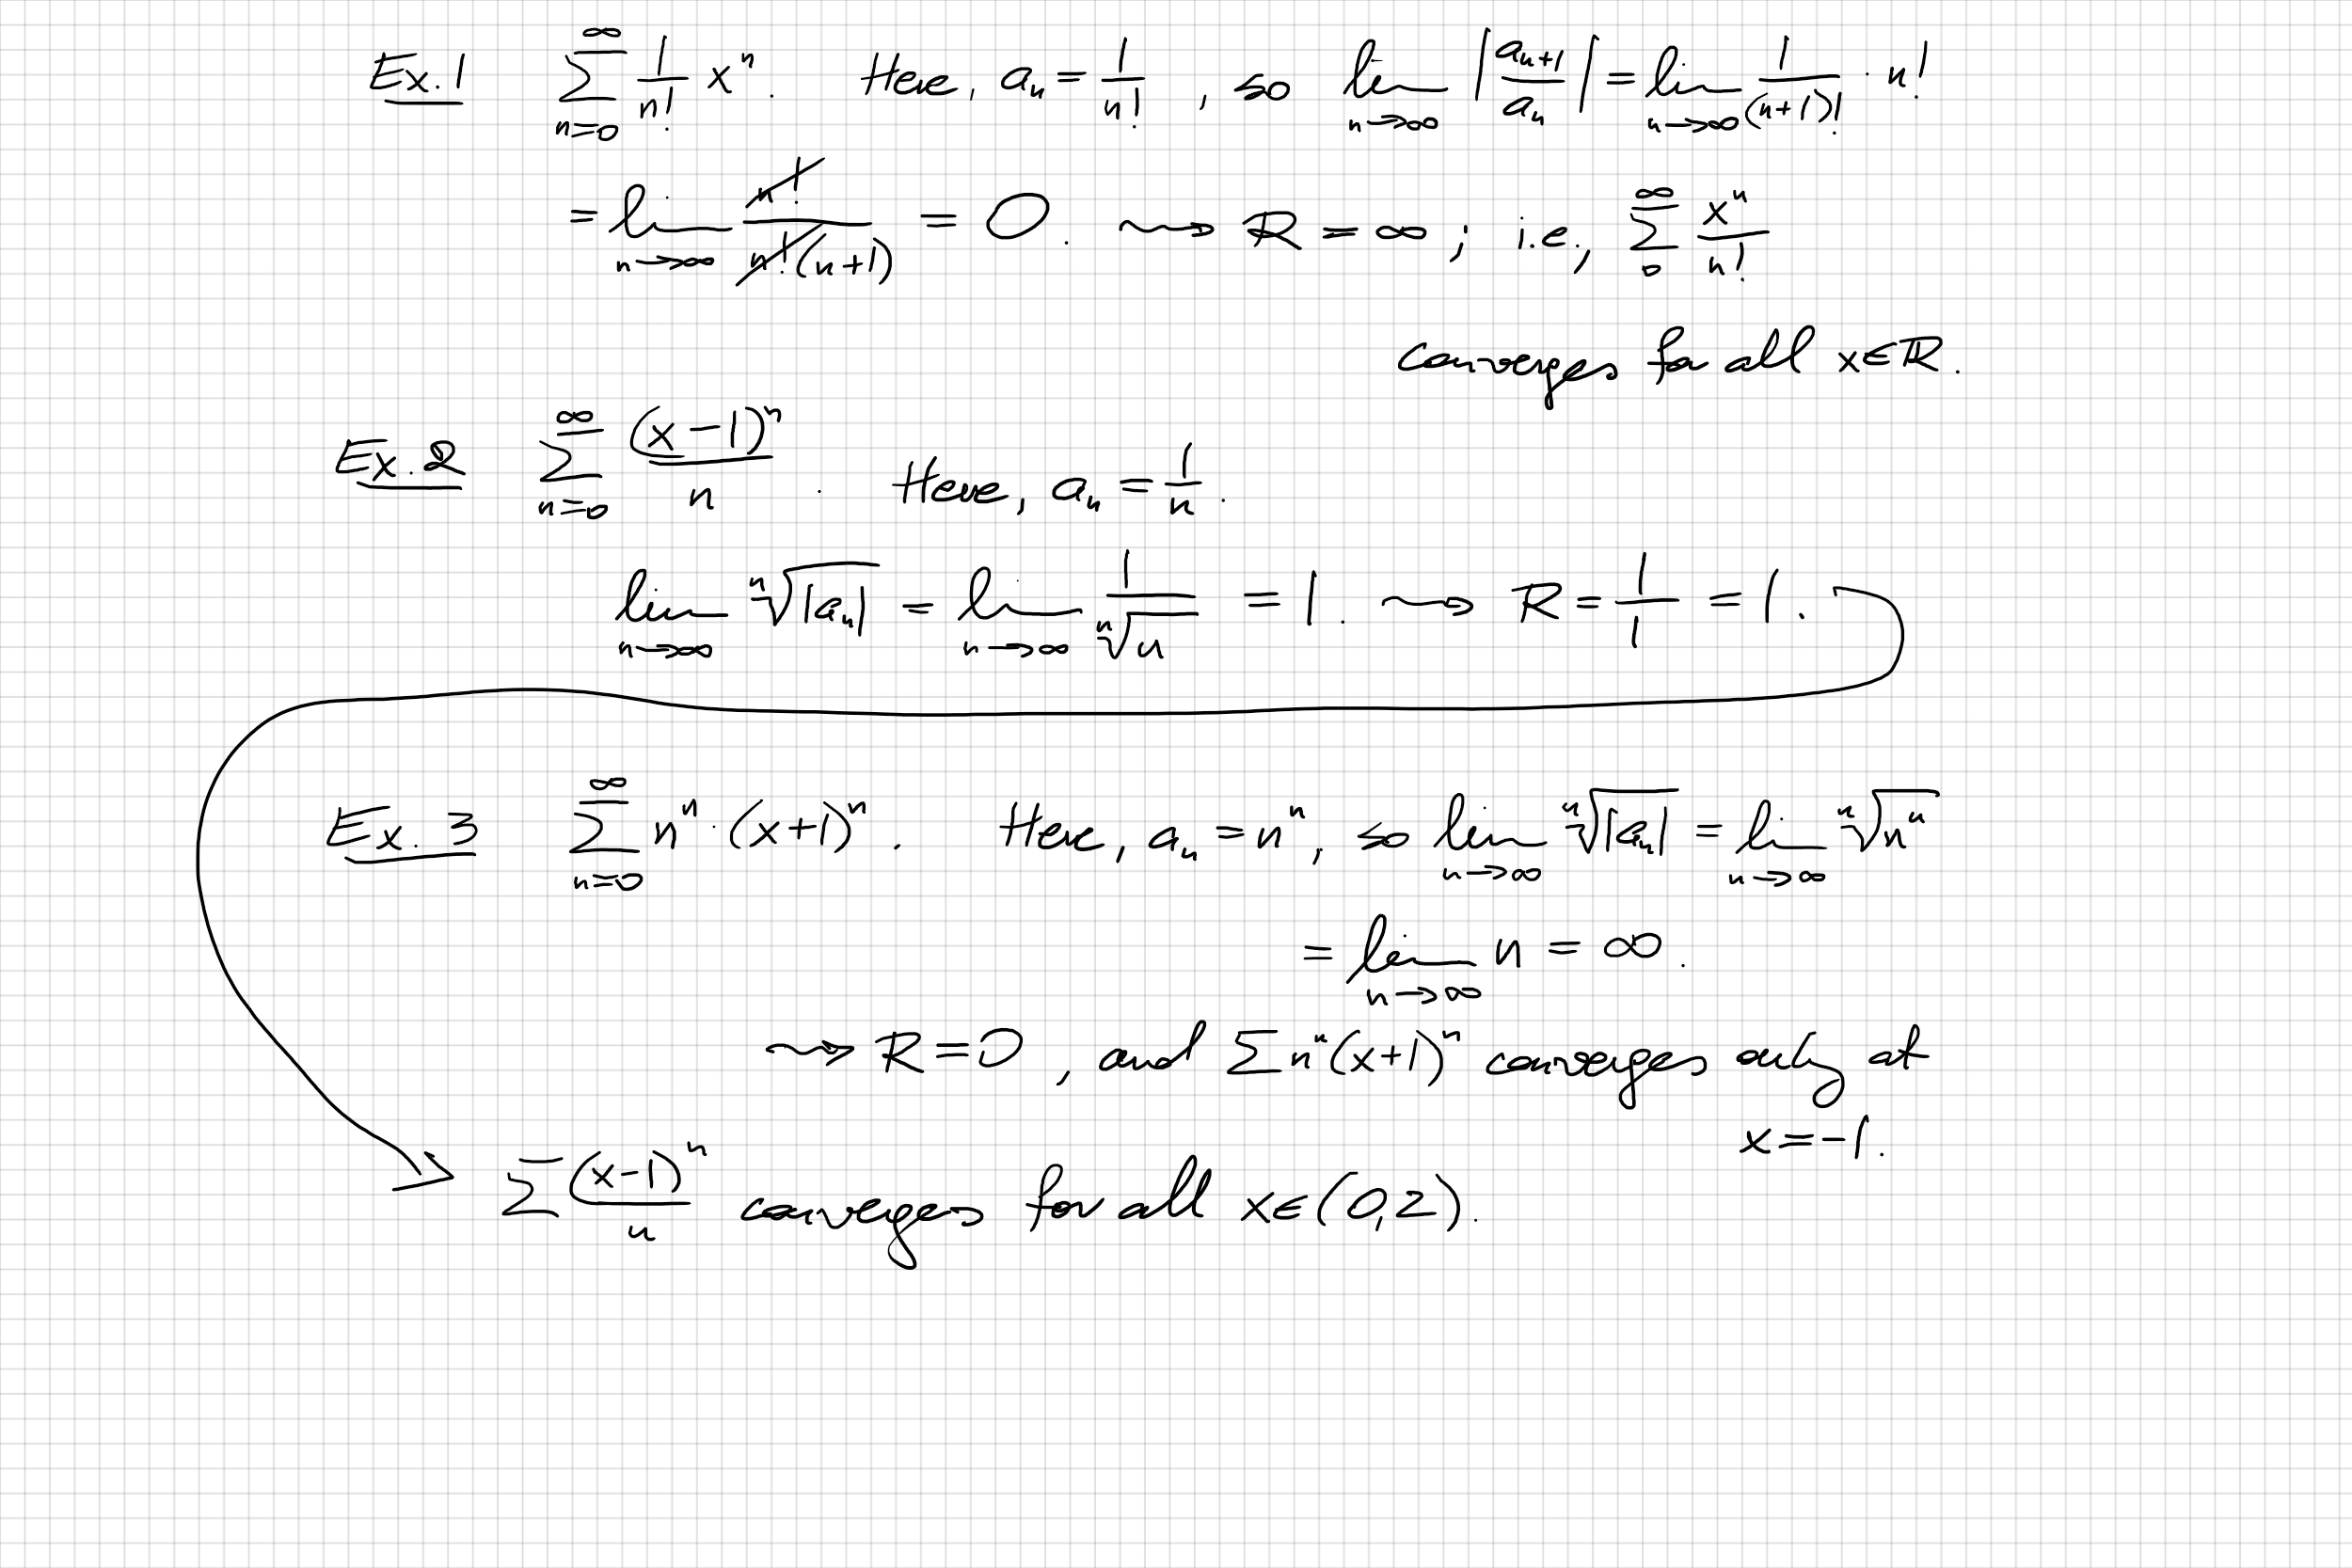 Ex. 1 $\sum_{n=0}^{\infty} \frac{1}{n!} x^n$. Here, $a_n = \frac{1}{n!}$, so $\lim_{n\to\infty} \left|\frac{a_{n+1}}{a_n}\right| = \lim_{n\to\infty} \frac{1}{(n+1)!} \cdot n!$
$= \lim_{n\to\infty} \frac{\cancel{n!}}{\cancel{n!}(n+1)} = 0$. $\leadsto R = \infty$; i.e., $\sum_{0}^{\infty} \frac{x^n}{n!}$
converges for all $x \in \mathbb{R}$.
Ex. 2 $\sum_{n=0}^{\infty} \frac{(x-1)^n}{n}$. Here, $a_n = \frac{1}{n}$.
$\lim_{n\to\infty} \sqrt[n]{|a_n|} = \lim_{n\to\infty} \frac{1}{\sqrt[n]{n}} = 1$. $\leadsto R = \frac{1}{1} = 1$.
Ex. 3 $\sum_{n=0}^{\infty} n^n \cdot (x+1)^n$. Here, $a_n = n^n$, so $\lim_{n\to\infty} \sqrt[n]{|a_n|} = \lim_{n\to\infty} \sqrt[n]{n^n}$
$= \lim_{n\to\infty} n = \infty$.
$\leadsto R = 0$, and $\sum n^n (x+1)^n$ converges only at
$x = -1$.
$\sum \frac{(x-1)^n}{n}$ converges for all $x \in (0,2)$.